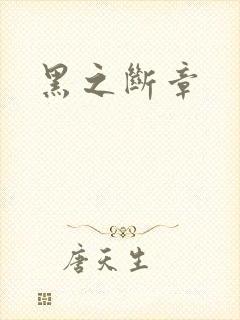 黑之斷章
唐天生